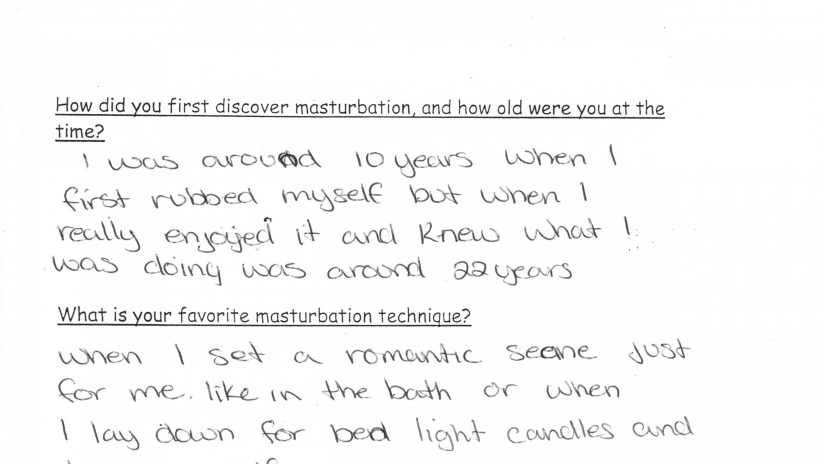 How did you first discover masturbation, and how old were you at the
time?
I was around 10 years when I
first rubbed myself but when I
really enjoyed it and knew what I
was doing was around 22 years
What is your favorite masturbation technique?
when I set a romantic seene just
for me. like in the bath or when
I lay down for bed light candles and